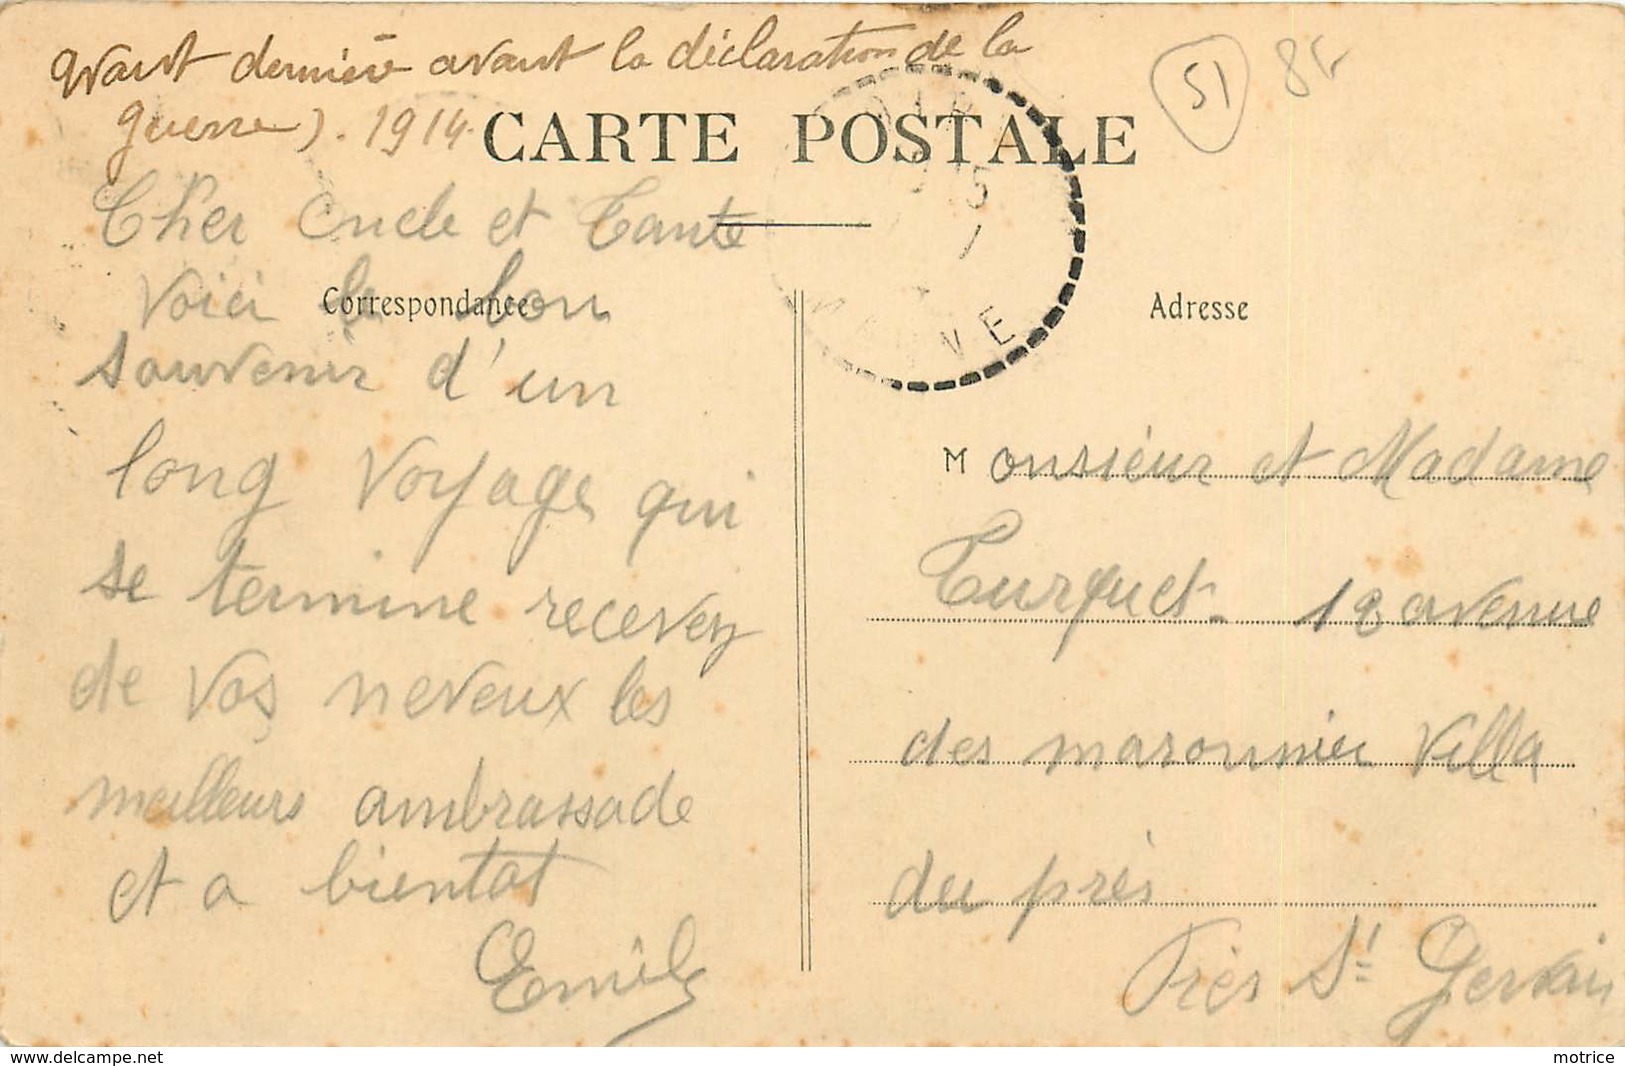 avant dernière avant la déclaration de la
guerre). 1914.
51
CARTE POSTALE
Cher Oncle et Tante
Voici le bon
Correspondance
souvenir d'un
long voyage qui
se termine recevez
de vos neveux les
meilleurs ambrassade
et a bientot
Emile
Adresse
VE
Monsieur et Madame
Turquet - 18 avenue
des maronnier Villa
du près
Près St Gervais
www.delcampe.net
motrice